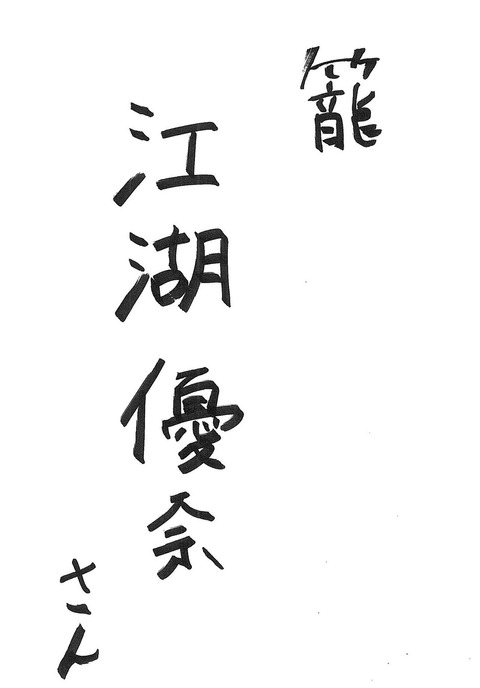 籠
江湖優奈
さん